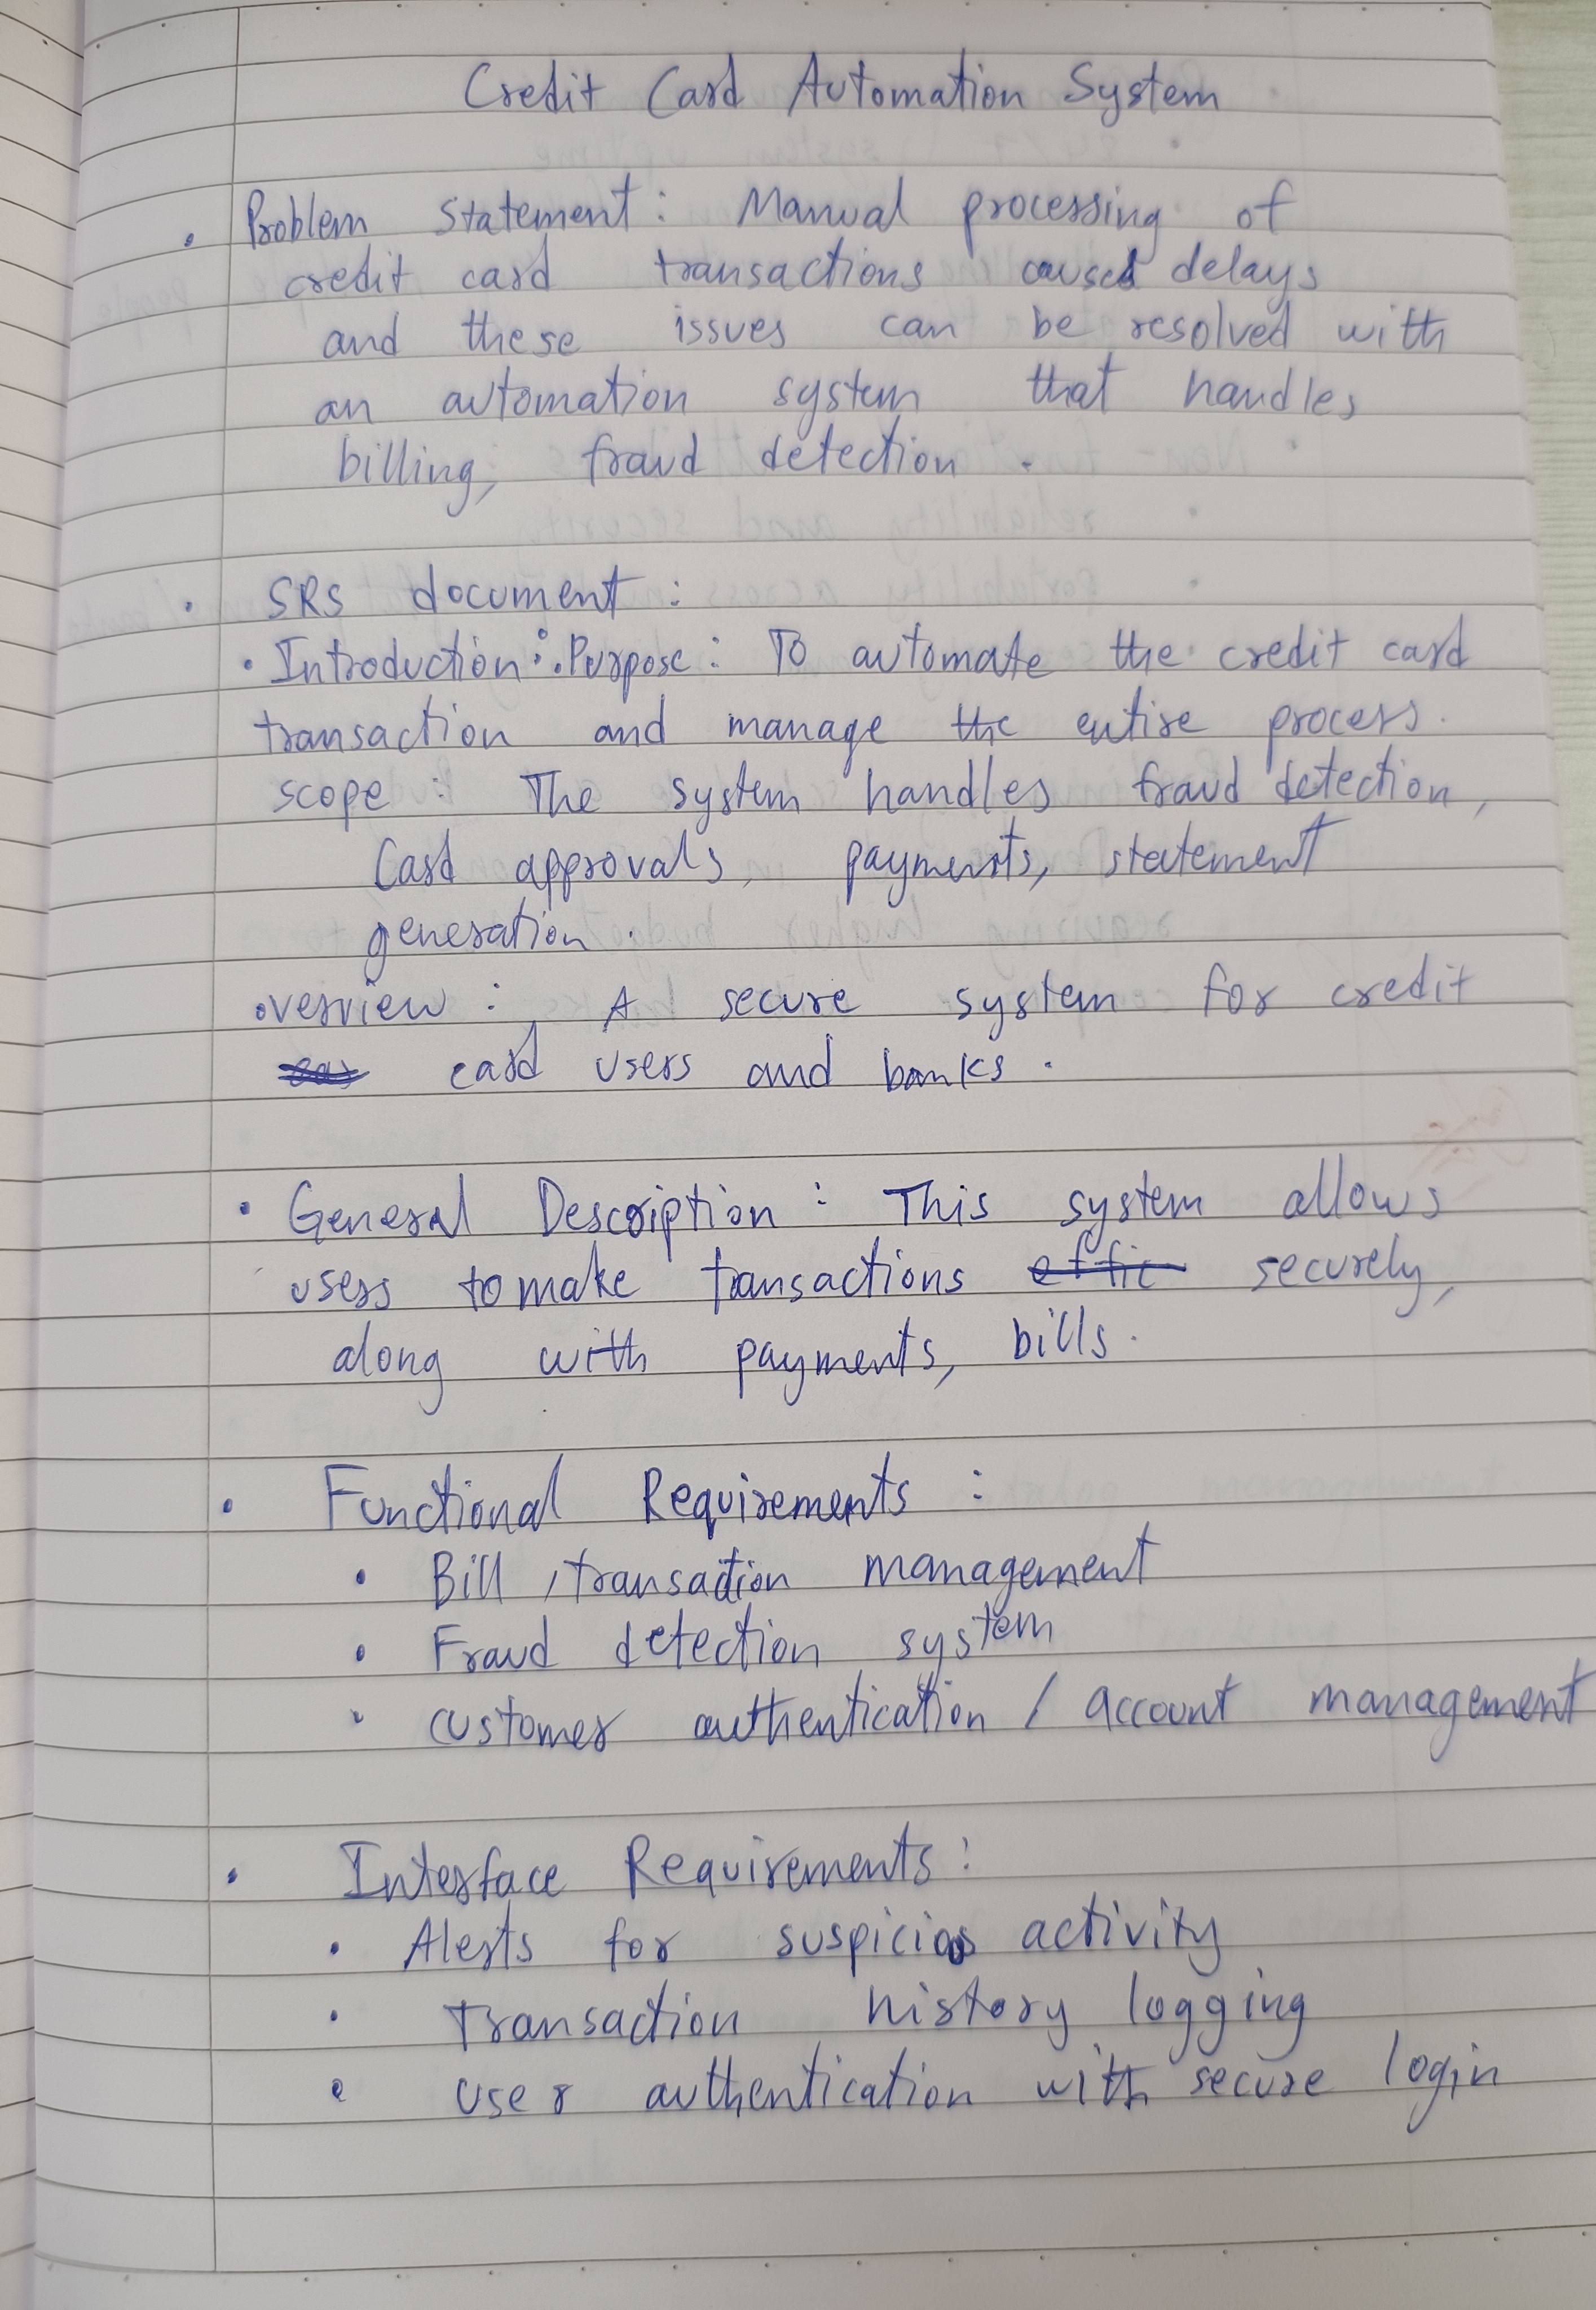 Credit Card Automation System
• Problem Statement : Manual processing of
credit card transactions caused delays
and these issues can be resolved with
an automation system that handles
billing, fraud detection .
• SRS document :
• Introduction : • Purpose : To automate the credit card
transaction and manage the entire process.
scope : The system handles fraud detection,
Card approvals, payments, statement
generation .
overview : A secure system for credit
card users and banks .
• General Description : This system allows
users to make transactions securely,
along with payments, bills.
• Functional Requirements :
• Bill, transaction management
• Fraud detection system
• customer authentication / account management
• Interface Requirements :
• Alerts for suspicios activity
• Transaction history logging
• User authentication with secure login